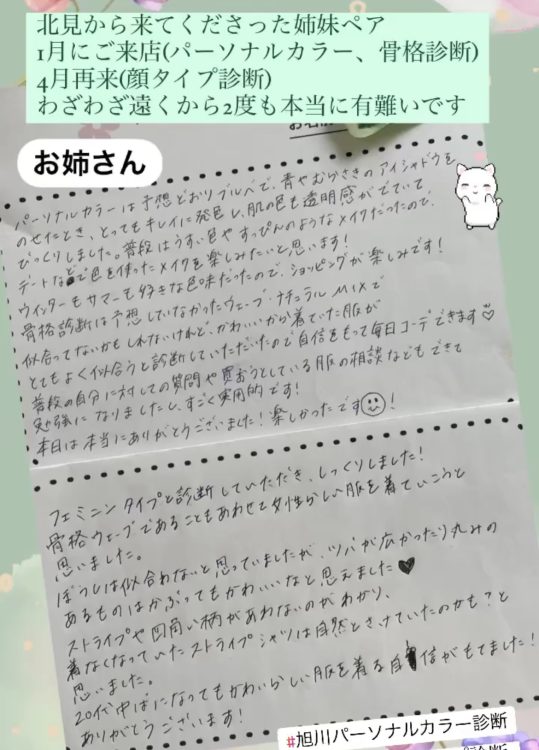 北見から来てくださった姉妹ペア
1月にご来店(パーソナルカラー、骨格診断)
4月再来(顔タイプ診断)
わざわざ遠くから2度も本当に有難いです
お姉さん
パーソナルカラーは予想どおりブルベで、青やむらさきのアイシャドウを
のせたとき、とってもキレイに発色し、肌の色も透明感がでていて、
びっくりしました。普段はうすい色やすっぴんのようなメイクだったので、
デートなどで色を使ったメイクを楽しみたいと思います!
ウィンターもサマーも好きな色味だったので、ショッピングが楽しみです!
骨格診断は予想していなかったウェーブ・ナチュラルMIXで
似合ってないかもしれないけれど、かわいいから着ていた服が
とてもよく似合うと診断していただいたので自信をもって毎日コーデできます♡
普段の自分に対しての質問や買おうとしている服の相談などもできて
勉強になりましたし、すごく実用的です!
本日は本当にありがとうございました!楽しかったです☺!
フェミニンタイプと診断していただき、しっくりしました!
骨格ウェーブであることもあわせて女性らしい服を着ていこうと
思いました。
ぼうしは似合わないと思っていましたが、ツバが広かったり丸みの
あるものはかぶってもかわいいなと思えました♥
ストライプや四角い柄があわないのがわかり、
着なくなっていたストライプシャツは自然とさけていたのかも?と
思いました。
20代中ばになってもかわいらしい服を着る自信がもてました!
ありがとうございます!
#旭川パーソナルカラー診断